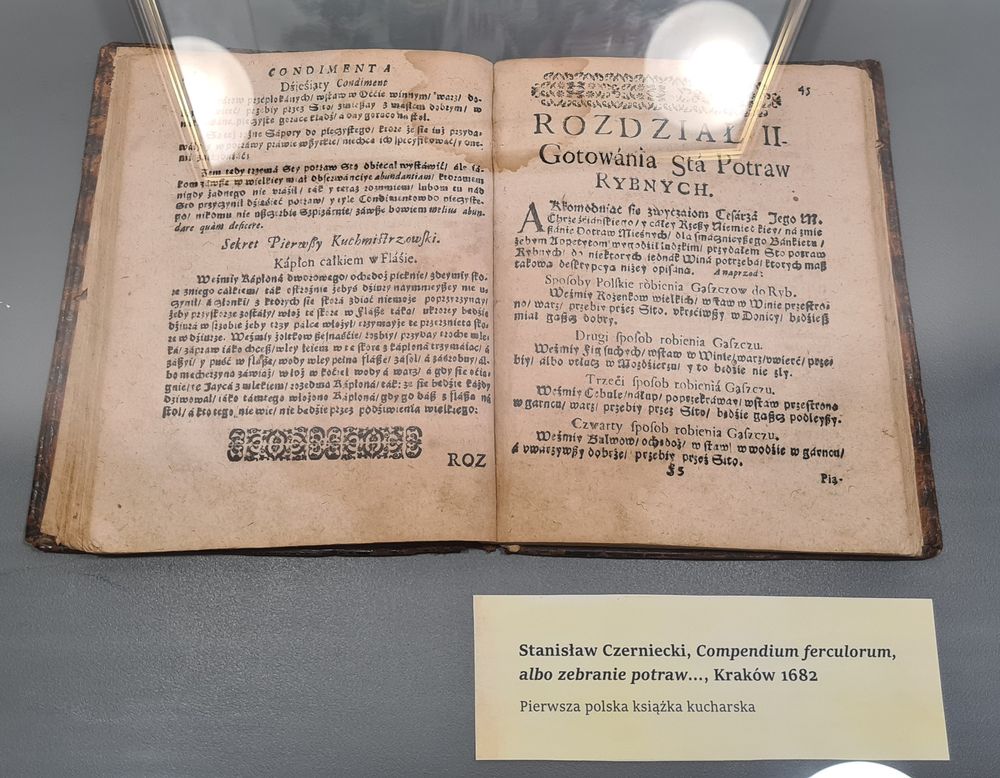 CONDIMENTA
Dźieśiąty Condiment
przepłokanych/ wstaw w Occie winnym/ warz/ do-
przebiy przez Sito/ zmieszay z masłem dobrym/ w
pieczyste gorące kładź/ a day gorąco na stoł.
Są też rożne Sapory do pieczystego/ ktore że się iuż przyda-
w potrawy prawie wszytkie/ niechcę ich specyfikować/
Jam tedy trzema Sty potraw Sto obiecał wystawić/ ale ia-
kom záwsze w wielkiey miał obserwáncyey abundantiam/ ktorą mem
nigdy żadnego nie uraźił/ ták y teraz rozumiem/ lubom tu nád
Sto przyczynił dźieśięć potraw/ y tyle Condimentow do pieczyste-
go/ nikomu nie uszczerbię Szpiżárnie/ záwsze bowiem melius abun-
dare quàm deficere.
Sekret Pierwszy Kuchmistrzowski.
Kápłon całkiem w Flászie.
Weźmiy Kápłoná dworowego/ ochędoż pięknie/ zdeymiy sko-
rę z niego całkiem/ ták ostrożnie żebyś dźiury naymnieyszey nie u-
czynił/ á członki/ z ktorych się skorá zdiąć niemoże poprzyrzynay/
żeby przy skorze zostáły/ włoż tę skorę w Flászę táką/ u ktorey będźie
dźiurá w szrobie żeby trzy palce włożył/ trzymayże tę przerzniętą sko-
rę w dźiurze. Weźmiy żołtkow piętnaśćie/ rozbiy/ przyday trochę mle-
ká/ zápraw iáko chcesz/ wley leiem w tę skorę z kápłoná trzymáiąc/ á
zászyi/ y puść w flászę/ wody wley pełną flászę/ zásol/ á zászrobuy/ al-
bo męchyrzyną záwiąż/ włoż w koćieł wody á warz/ á gdy się ośią-
gnie/ te Jaycá z mlekiem/ rozedmą Kápłoná/ ták: że się będźie káżdy
dźiwował/ iáko támtego włożono Kápłoná/ gdy go dász z flászą ná
stoł/ á kto tego nie wie/ nie będźie przez podźiwienia wielkiego:
ROZ
45
ROZDZIAŁ II.
Gotowánia Stá Potraw
RYBNYCH.
Akkomoduiąc się zwyczáiom Cesárzá Jego M.
Chrześćiáńskiego/ y cáłey Rzeszy Niemieckiey/ ná zmie-
szánie Potraw Mięsnych/ dla smácznieyszego Bánkietu/
żebym Appetytom wygodźił ludzkim/ przydałem Sto potraw
Rybnych/ do niektorych iednák Winá potrzebá/ ktorych masz
tákową deskrypcyą niżey opisáną. A naprzod:
Sposoby Polskie robienia Gąszczow do Ryb.
Weźmiy Rozenkow wielkich/ wstaw w Winie przestro-
no/ warz/ przebiy przez Sito. wkręćiwszy w Donicy/ będźiesz
miał gąszcz dobry.
Drugi sposob robienia Gąszczu.
Weźmiy Fig suchych/ wstaw w Winie/ warz/ dowierć/ prze-
biy/ albo utłucz w Mozdżerzu/ y to będźie nie zły.
Trzeći sposob robienia Gąszczu.
Weźmiy Cebule/ nákup/ poprzekráway/ wstaw przestrono
w garncu/ warz/ przebiy przez Sito/ będźie gąszcz podleyszy.
Czwarty sposob robienia Gąszczu.
Weźmiy Bulwow/ ochędoż/ wstaw w wodźie w garncu/
á uwarzywszy dobrze/ przebiy przez Sito.
Pią-
Stanisław Czerniecki, Compendium ferculorum,
albo zebranie potraw..., Kraków 1682
Pierwsza polska książka kucharska